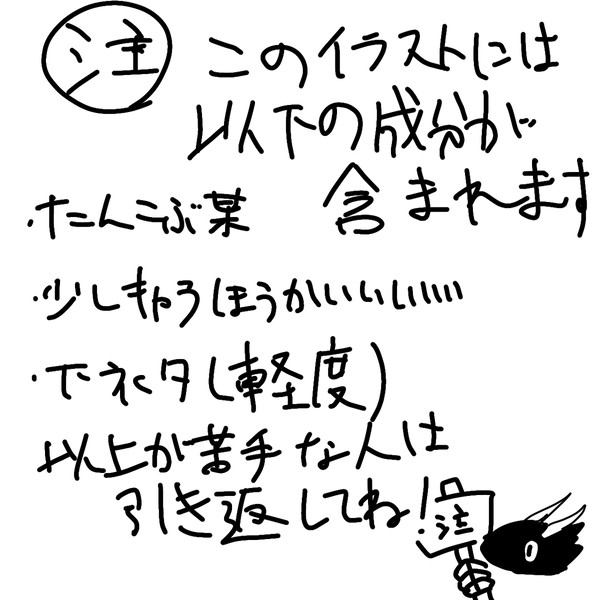 注 このイラストには
以下の成分が
含まれます
・たんこぶ菓
・少しきゃらほうかいいいいいい
・下ネタ(軽度)
以上が苦手な人は
引き返してね!
注